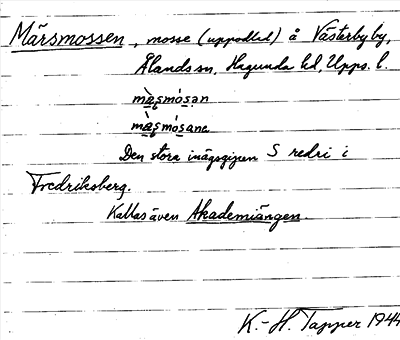 Märsmossen, mosse (uppodlad) å Västerby by,
Ålands sn, Hagunda hd, Upps. l.
Den stora inägogipen S redri i
Fredriksberg.
Kallas även Akademiängen.
K.-H. Tapper 1944